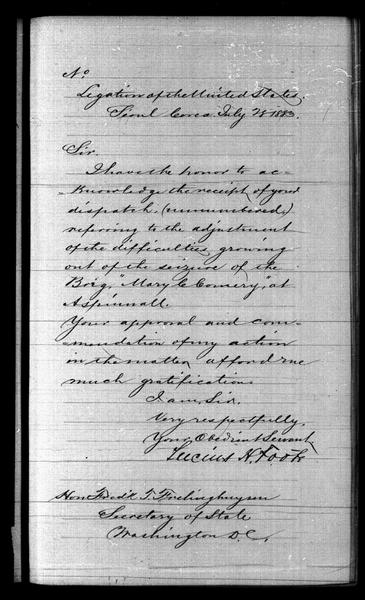 No
Legation of the United States.
Seoul Corea July 28 1883.
Sir.
I have the honor to ac-
-knowledge the receipt of your
dispatch, (unnumbered,)
referring to the adjustment
of the difficulties growing
out of the seizure of the
Brig, "Mary C Comery," at
Aspinwall.
Your approval and com-
-mendation of my action
in the matter, afford me
much gratification.
I am, Sir,
Very respectfully,
Your Obedient Servant,
Lucius H. Foote
Hon Fredk T. Frelinghuysen
Secretary of State
Washington D.C.